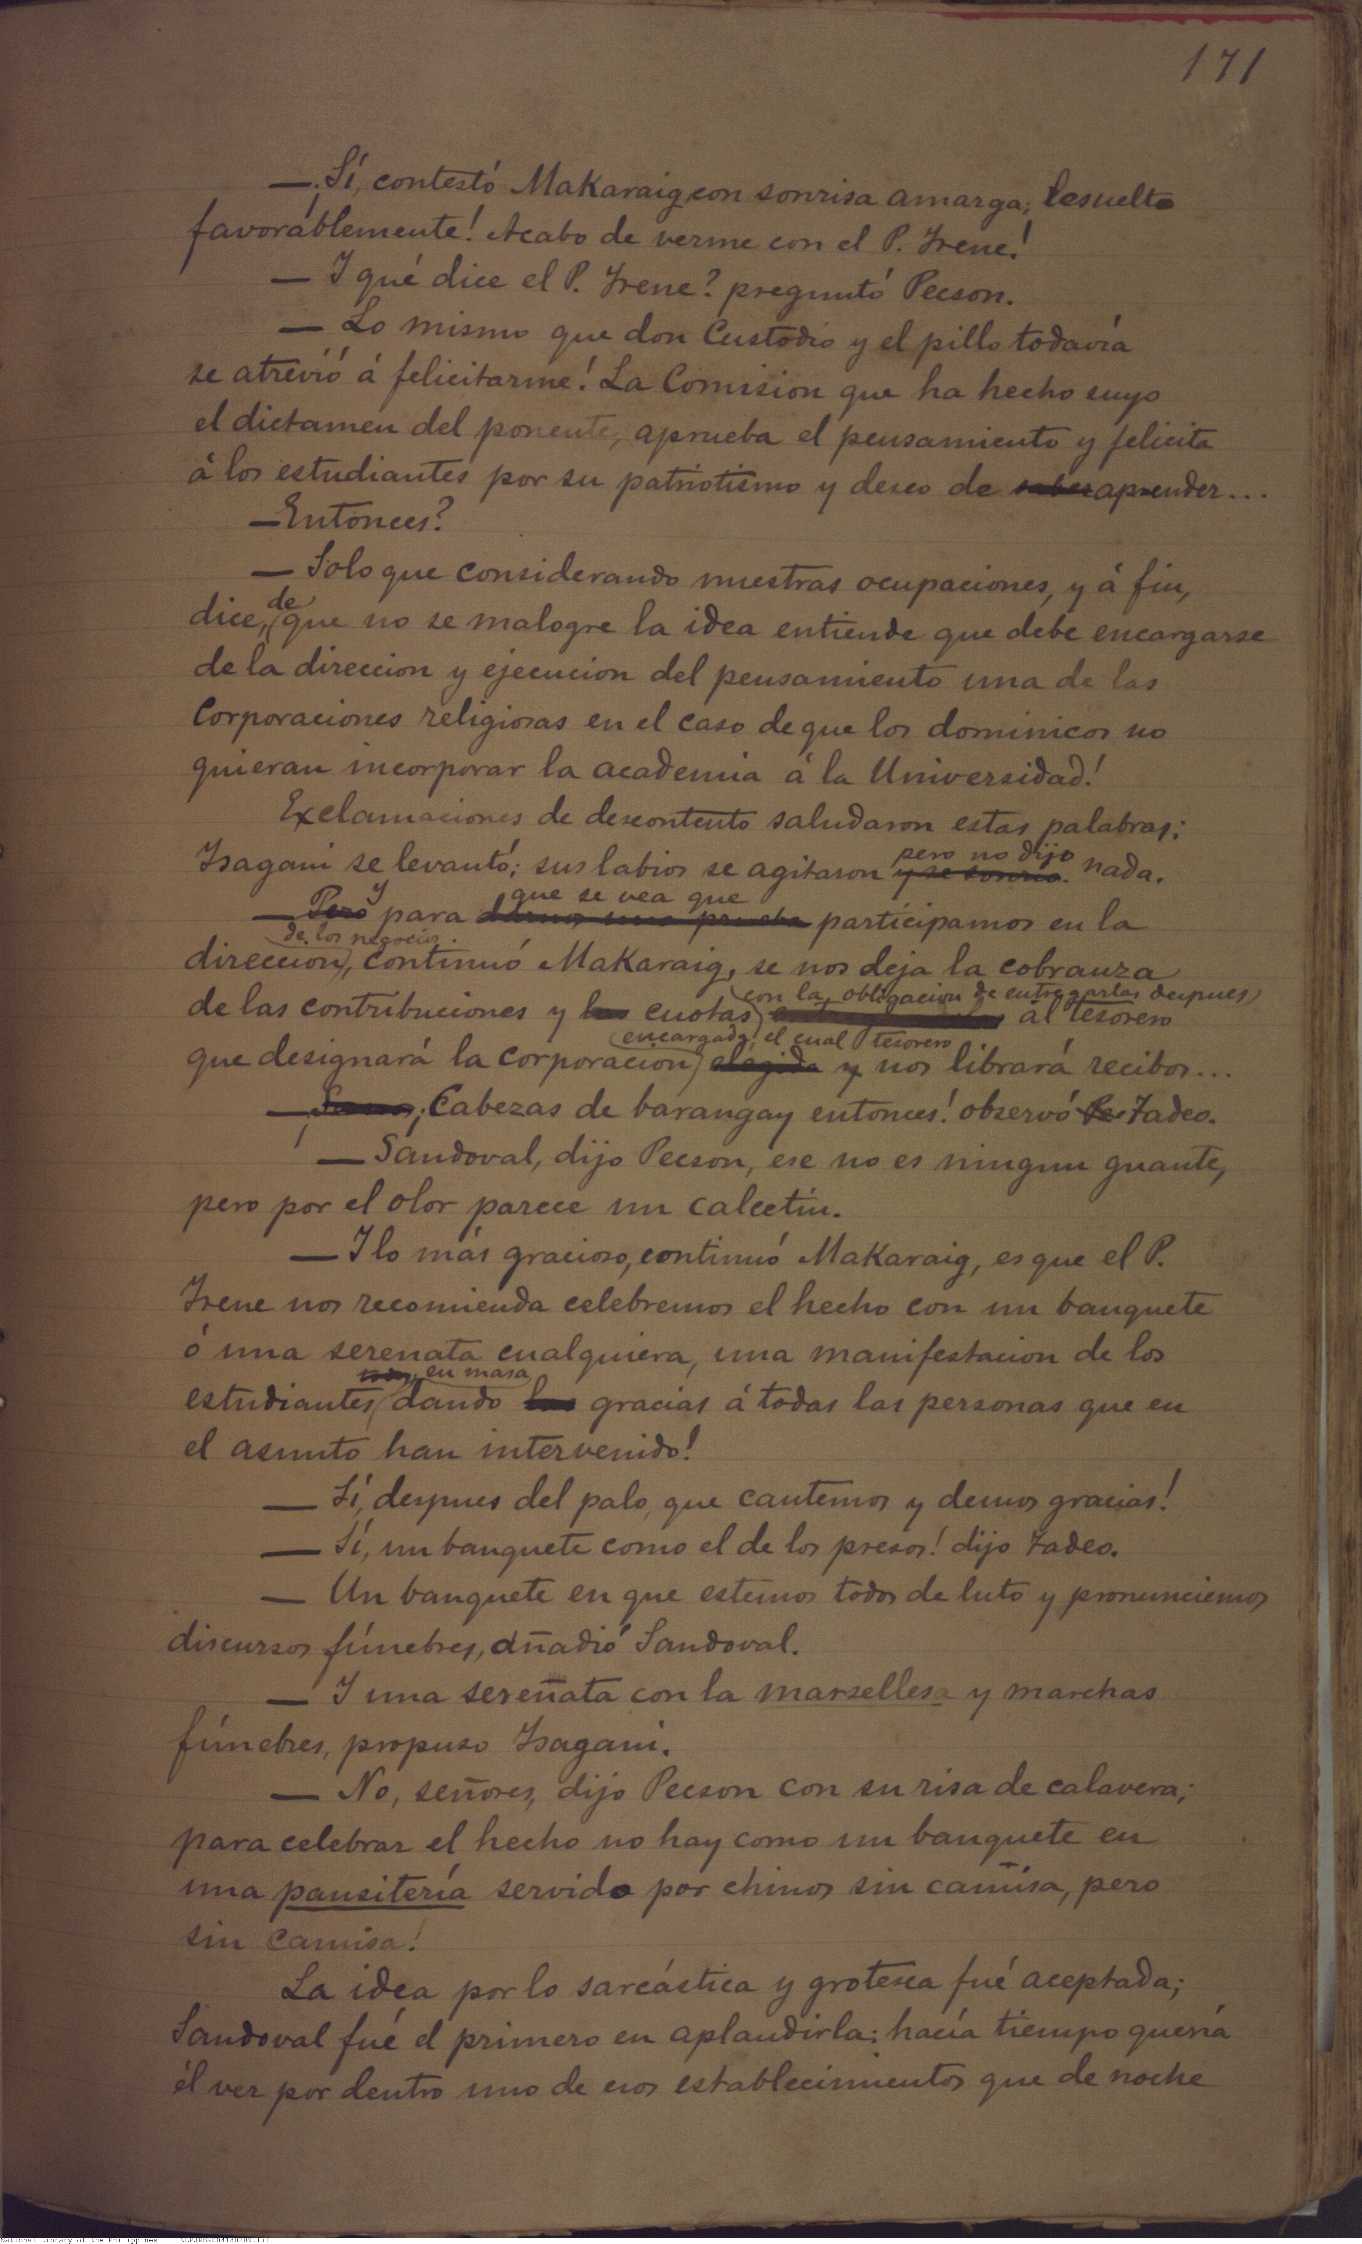 171
—¡Sí, contestó Makaraig con sonrisa amarga; resuelto
favorablemente! Acabo de verme con el P. Irene!
— Y qué dice el P. Irene? preguntó Pecson.
— Lo mismo que don Custodio y el pillo todavía
se atrevió á felicitarme! La Comision que ha hecho suyo
el dictamen del ponente, aprueba el pensamiento y felicita
á los estudiantes por su patriotismo y deseo de saber aprender...
—Entonces?
— Solo que considerando nuestras ocupaciones, y á fin,
de
dice, que no se malogre la idea entiende que debe encargarse
de la direccion y ejecucion del pensamiento una de las
Corporaciones religiosas en el caso de que los dominicos no
quieran incorporar la academia á la Universidad!
Exclamaciones de descontento saludaron estas palabras;
pero no dijo
Isagani se levantó; sus labios se agitaron y se sonrió. nada.
y que se vea que
— Pero para darnos una prueba participamos en la
de los negocios
direccion, continuó Makaraig, se nos deja la cobranza
con la obligacion de entregarlas despues
de las contribuciones y las cuotas al tesorero
encargada, el cual tesorero
que designará la corporacion elegida y nos librará recibos...
—¡ ¡Cabezas de barangay entonces! observó Pe Tadeo.
— Sandoval, dijo Pecson, ese no es ningun guante,
pero por el olor parece un calcetin.
— Y lo más gracioso, continuó Makaraig, es que el P.
Irene nos recomienda celebremos el hecho con un banquete
ó una serenata cualquiera, una manifestacion de los
todos, en masa
estudiantes dando las gracias á todas las personas que en
el asunto han intervenido!
— Sí, despues del palo, que cantemos y demos gracias!
— Sí, un banquete como el de los presos! dijo Tadeo.
— Un banquete en que estemos todos de luto y pronunciemos
discursos fúnebres, añadió Sandoval.
— Y una serenata con la marsellesa y marchas
fúnebres, propuso Isagani.
— No, señores, dijo Pecson con su risa de calavera;
para celebrar el hecho no hay como un banquete en
una pansitería servido por chinos sin camisa, pero
sin camisa!
La idea por lo sarcástica y grotesca fué aceptada;
Sandoval fué el primero en aplaudirla; hacía tiempo quería
él ver por dentro uno de esos establecimientos que de noche